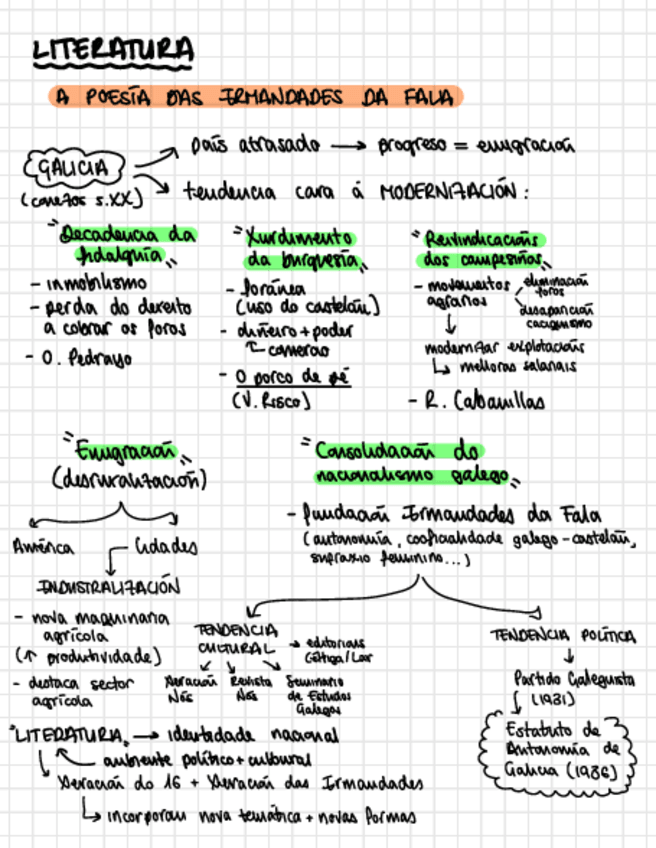 LITERATURA
A POESÍA DAS IRMANDADES DA FALA
GALICIA
(comezos s.XX)
país atrasado → progreso = emigración
tendencia cara á MODERNIZACIÓN:
"Decadencia da
fidalguía"
- inmobilismo
- perda do dereito
a cobrar os foros
- O. Pedrayo
"Xurdimento
da burguesía"
- foránea
(uso do castelán)
- diñeiro + poder
comercio
- O porco de pé
(V. Risco)
"Reivindicacións
dos campesiños"
- movementos
agrarios
eliminación
foros
desaparición
caciquismo
↓
modernizar explotacións
↳ melloras salariais
- R. Cabanillas
"Emigración"
(desruralización)
América
Cidades
INDUSTRALIZACIÓN
- nova maquinaria
agrícola
(↑ produtividade)
- destaca sector
agrícola
"Consolidación do
nacionalismo galego"
- fundación Irmandades da Fala
(autonomía, cooficialidade galego-castelán,
sufraxio feminino...)
TENDENCIA
CULTURAL
→ editoriais
Céltiga/Lar
Xeración
Nós
Revista
Nós
Seminario
de Estudos
Galegos
TENDENCIA POLÍTICA
↓
Partido Galeguista
(1931)
Estatuto de
Autonomía de
Galicia (1936)
"LITERATURA" → identidade nacional
ambiente político + cultural
Xeración do 16 + Xeración das Irmandades
↳ incorporan nova temática + novas formas